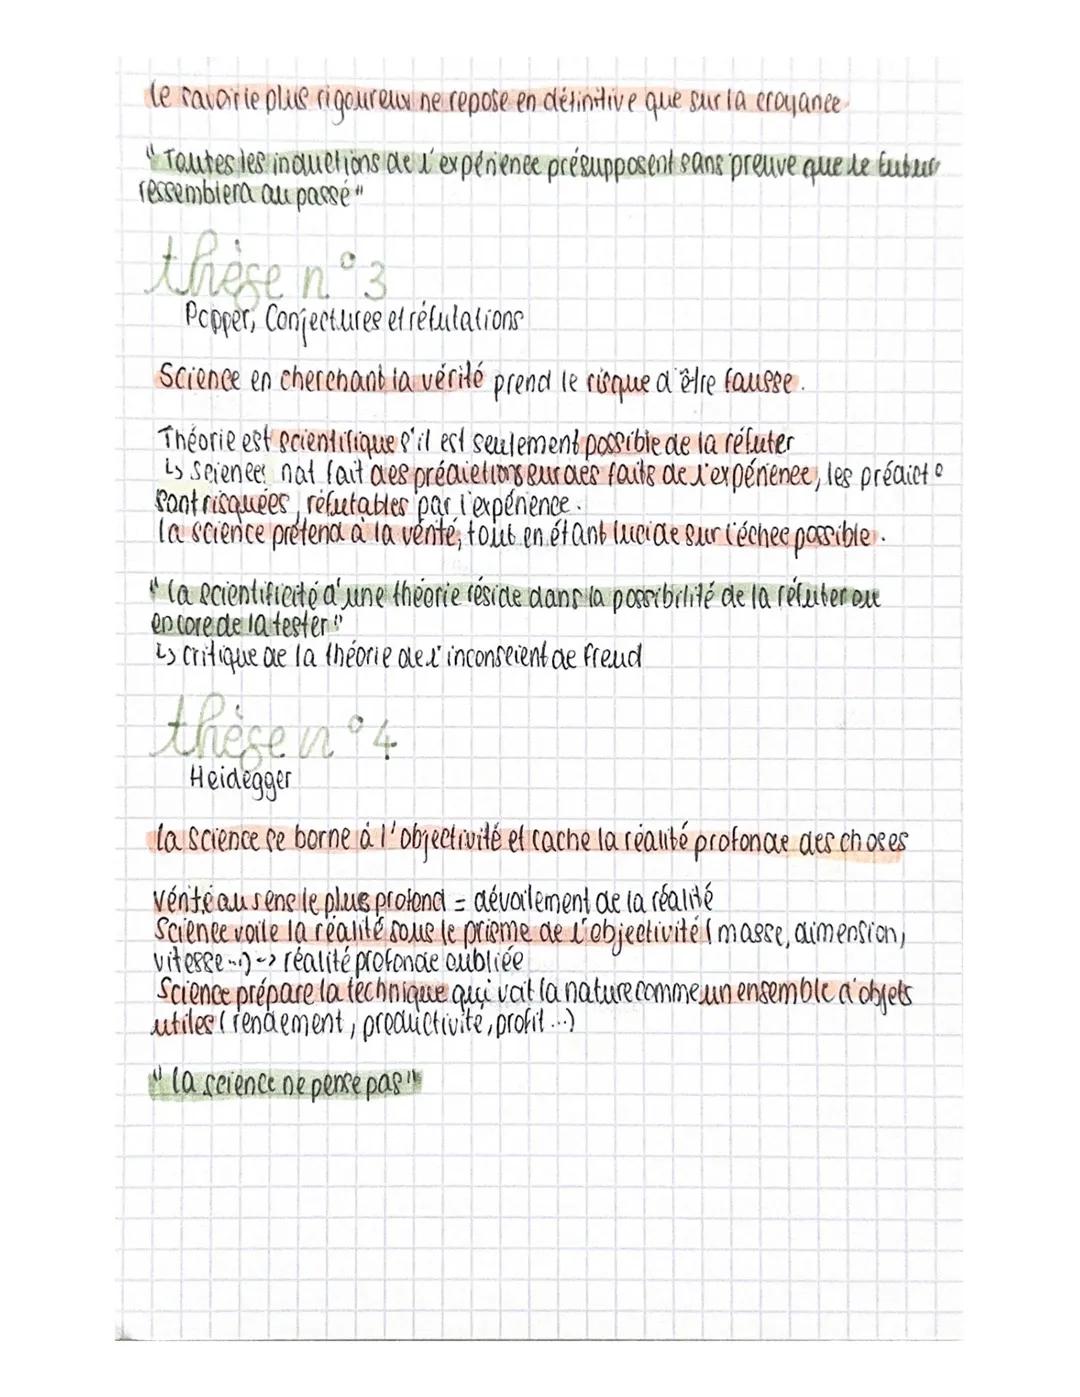 le savoir le plus rigoureux ne repose en définitive que sur la croyance.
" Toutes les inductions de l'expérience présupposent sans preuve que le futur
ressemblera au passé "
thèse n°3
Popper, Conjectures et réfutations
Science en cherchant la vérité prend le risque d'être fausse.
Théorie est scientifique s'il est seulement possible de la réfuter
↳ sciences nat fait des prédictions sur des faits de l'expérience, les prédict°
sont risquées, réfutables par l'expérience.
la science prétend à la vérité, tout en étant lucide sur l'échec possible.
" la scientificité d'une théorie réside dans la possibilité de la réfuter ou
encore de la tester "
↳ critique de la théorie de l'inconscient de Freud
thèse n°4
Heidegger
la science se borne à l'objectivité et cache la réalité profonde des choses
vérité au sens le plus profond = dévoilement de la réalité
Science voile la réalité sous le prisme de l'objectivité (masse, dimension,
vitesse...) -> réalité profonde oubliée
Science prépare la technique qui voit la nature comme un ensemble d'objets
utiles (rendement, productivité, profit...)
" la science ne pense pas "